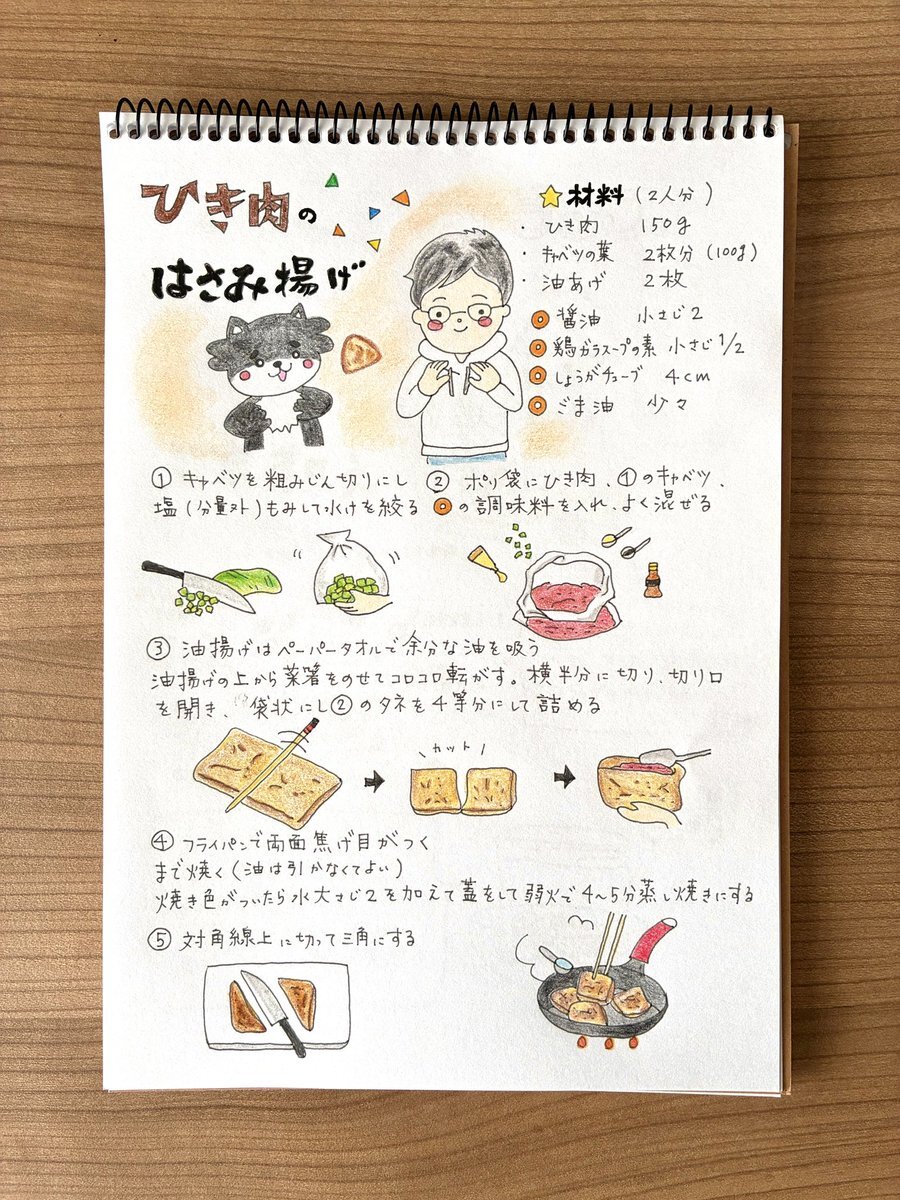 ひき肉の
はさみ揚げ
⭐材料（2人分）
・ひき肉 150g
・キャベツの葉 2枚分（100g）
・油あげ 2枚
醤油 小さじ2
鶏ガラスープの素 小さじ1/2
しょうがチューブ 4cm
ごま油 少々
① キャベツを粗みじん切りにし
塩（分量外）もみして水けを絞る
② ポリ袋にひき肉、①のキャベツ、
の調味料を入れ、よく混ぜる
③ 油揚げはペーパータオルで余分な油を吸う
油揚げの上から菜箸をのせてコロコロ転がす。横半分に切り、切り口
を開き、袋状にし②のタネを4等分にして詰める
カット
④ フライパンで両面焦げ目がつく
まで焼く（油は引かなくてよい）
焼き色がついたら水大さじ2を加えて蓋をして弱火で4~5分蒸し焼きにする
⑤ 対角線上に切って三角にする